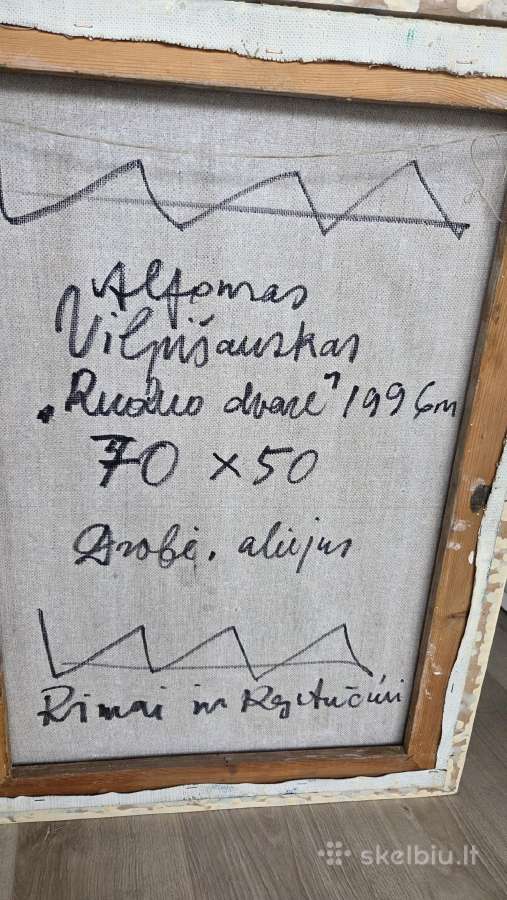 Alfonsas
Vilpišauskas
„Rudens dvare" 1996m
70 x 50
Drobė. aliejus
Rimai ir Kęstučiui
skelbiu.lt